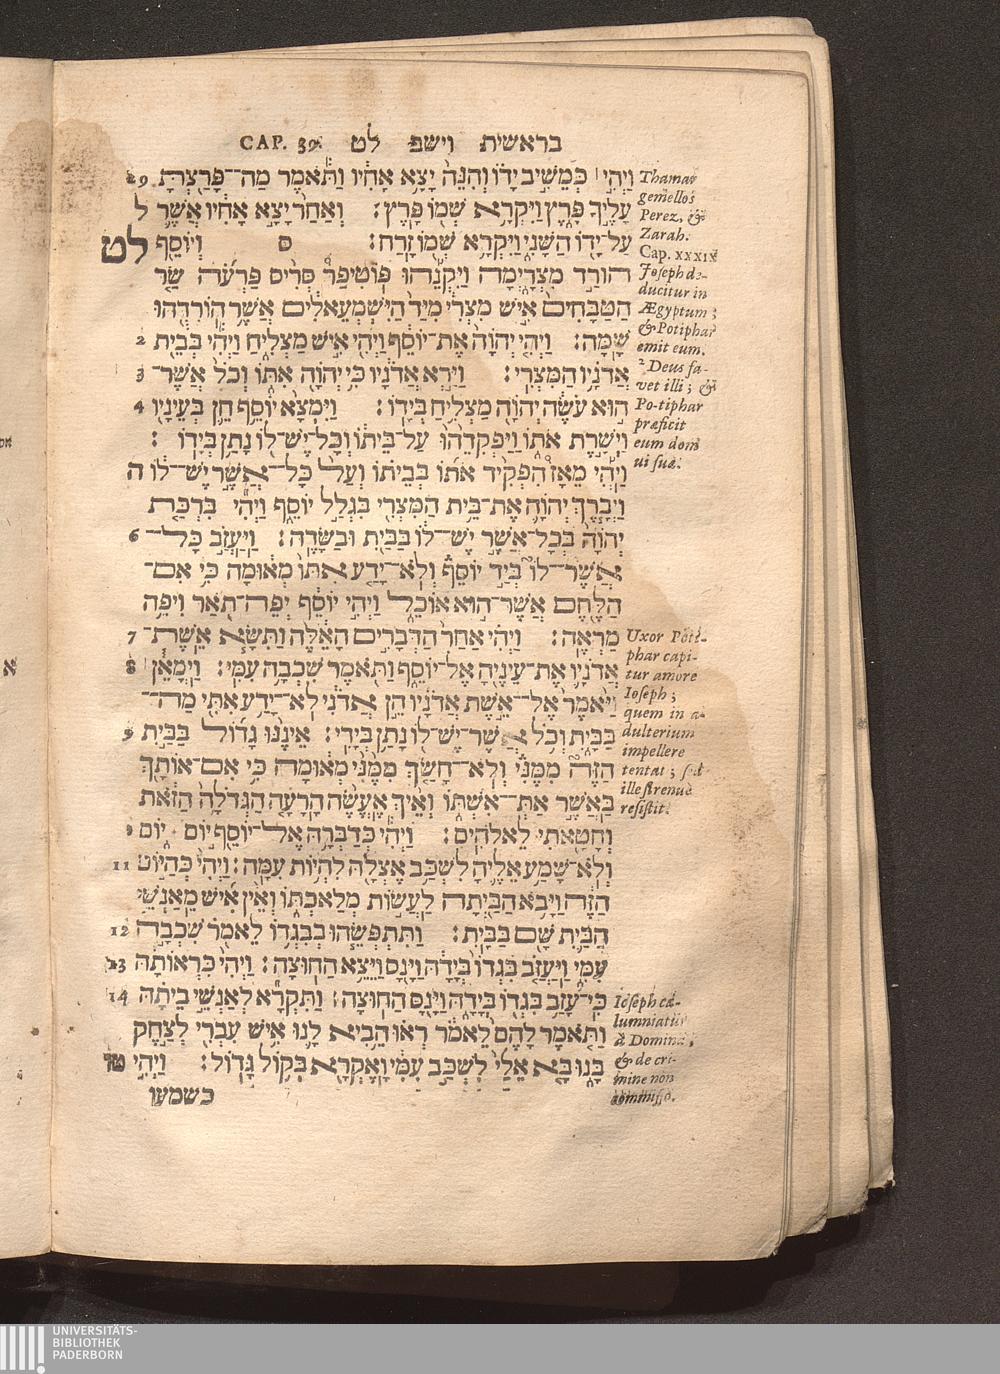 בראשית וישפ לט CAP. 39.
29 וַיְהִי׀ כְּמֵשִׁיב יָדוֹ וְהִנֵּה יָצָא אָחִיו וַתֹּאמֶר מַה־פָּרַצְתָּ
עָלֶיךָ פָּרֶץ וַיִּקְרָא שְׁמוֹ פָּרֶץ׃ וְאַחַר יָצָא אָחִיו אֲשֶׁר ל
עַל־יָדוֹ הַשָּׁנִי וַיִּקְרָא שְׁמוֹ זָרַח׃ ס וְיוֹסֵף לט
הוּרַד מִצְרָיְמָה וַיִּקְנֵהוּ פּוֹטִיפַר סְרִיס פַּרְעֹה שַׂר
הַטַּבָּחִים אִישׁ מִצְרִי מִיַּד הַיִּשְׁמְעֵאלִים אֲשֶׁר הוֹרִדֻהוּ
שָׁמָּה׃ וַיְהִי יְהוָה אֶת־יוֹסֵף וַיְהִי אִישׁ מַצְלִיחַ וַיְהִי בְּבֵית 2
אֲדֹנָיו הַמִּצְרִי׃ וַיַּרְא אֲדֹנָיו כִּי יְהוָה אִתּוֹ וְכֹל אֲשֶׁר־ 3
הוּא עֹשֶׂה יְהוָה מַצְלִיחַ בְּיָדוֹ׃ וַיִּמְצָא יוֹסֵף חֵן בְּעֵינָיו 4
וַיְשָׁרֶת אֹתוֹ וַיַּפְקִדֵהוּ עַל־בֵּיתוֹ וְכָל־יֶשׁ־לוֹ נָתַן בְּיָדוֹ׃
וַיְהִי מֵאָז הִפְקִיד אֹתוֹ בְּבֵיתוֹ וְעַל כָּל־אֲשֶׁר יֶשׁ־לוֹ ה
וַיְבָרֶךְ יְהוָה אֶת־בֵּית הַמִּצְרִי בִּגְלַל יוֹסֵף וַיְהִי בִּרְכַּת
יְהוָה בְּכָל־אֲשֶׁר יֶשׁ־לוֹ בַּבַּיִת וּבַשָּׂדֶה׃ וַיַּעֲזֹב כָּל־ 6
אֲשֶׁר־לוֹ בְּיַד יוֹסֵף וְלֹא־יָדַע אִתּוֹ מְאוּמָה כִּי אִם־
הַלֶּחֶם אֲשֶׁר־הוּא אוֹכֵל וַיְהִי יוֹסֵף יְפֵה־תֹאַר וִיפֵה
מַרְאֶה׃ וַיְהִי אַחַר הַדְּבָרִים הָאֵלֶּה וַתִּשָּׂא אֵשֶׁת־ 7
אֲדֹנָיו אֶת־עֵינֶיהָ אֶל־יוֹסֵף וַתֹּאמֶר שִׁכְבָה עִמִּי׃ וַיְמָאֵן׀ 8
וַיֹּאמֶר אֶל־אֵשֶׁת אֲדֹנָיו הֵן אֲדֹנִי לֹא־יָדַע אִתִּי מַה־
בַּבָּיִת וְכֹל אֲשֶׁר־יֶשׁ־לוֹ נָתַן בְּיָדִי׃ אֵינֶנּוּ גָדוֹל בַּבַּיִת 9
הַזֶּה מִמֶּנִּי וְלֹא־חָשַׂךְ מִמֶּנִּי מְאוּמָה כִּי אִם־אוֹתָךְ
בַּאֲשֶׁר אַתְּ־אִשְׁתּוֹ וְאֵיךְ אֶעֱשֶׂה הָרָעָה הַגְּדֹלָה הַזֹּאת
וְחָטָאתִי לֵאלֹהִים׃ וַיְהִי כְּדַבְּרָהּ אֶל־יוֹסֵף יוֹם יוֹם
וְלֹא־שָׁמַע אֵלֶיהָ לִשְׁכַּב אֶצְלָהּ לִהְיוֹת עִמָּהּ׃ וַיְהִי כְּהַיּוֹם 11
הַזֶּה וַיָּבֹא הַבַּיְתָה לַעֲשׂוֹת מְלַאכְתּוֹ וְאֵין אִישׁ מֵאַנְשֵׁי
הַבַּיִת שָׁם בַּבָּיִת׃ וַתִּתְפְּשֵׂהוּ בְּבִגְדוֹ לֵאמֹר שִׁכְבָה 12
עִמִּי וַיַּעֲזֹב בִּגְדוֹ בְּיָדָהּ וַיָּנָס וַיֵּצֵא הַחוּצָה׃ וַיְהִי כִּרְאוֹתָהּ 13
כִּי־עָזַב בִּגְדוֹ בְּיָדָהּ וַיָּנָס הַחוּצָה׃ וַתִּקְרָא לְאַנְשֵׁי בֵיתָהּ 14
וַתֹּאמֶר לָהֶם לֵאמֹר רְאוּ הֵבִיא לָנוּ אִישׁ עִבְרִי לְצַחֶק
בָּנוּ בָּא אֵלַי לִשְׁכַּב עִמִּי וָאֶקְרָא בְּקוֹל גָּדוֹל׃ וַיְהִי טו
כשמעו
Thamar
gemellos
Perez, &
Zarah.
Cap. XXXIX
Ioseph de-
ducitur in
Ægyptum;
& Potiphar
emit eum.
2 Deus fa-
vet illi; &
Po-tiphar
præficit
eum dom
ui suæ.
Uxor Poti-
phar capi-
tur amore
Ioseph;
quem in a-
dulterium
impellere
tentat; sed
ille strenuè
resistit.
Ioseph ca-
lumniatur
à Domina;
& de cri-
mine non
admisso.
UNIVERSITÄTS-
BIBLIOTHEK
PADERBORN